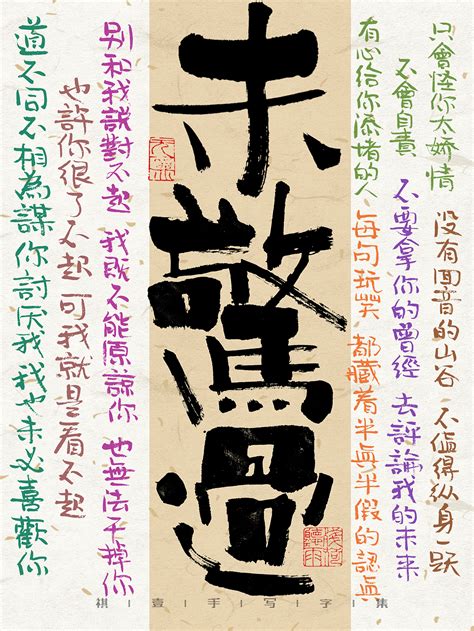 只會怪你太嬌情
沒有回音的山谷 不值得纵身一跃
不會自責
不要拿你的曾經 去評論我的未来
有心給你添堵的人
每句玩笑 都藏着半真半假的認真
未驚過
别和我說對不起 我既不能原諒你 也無法干掉你
也許你很了不起 可我就是看不起
道不同不相為謀 你討厌我 我也未必喜歡你
祺|壹|手|写|字|集